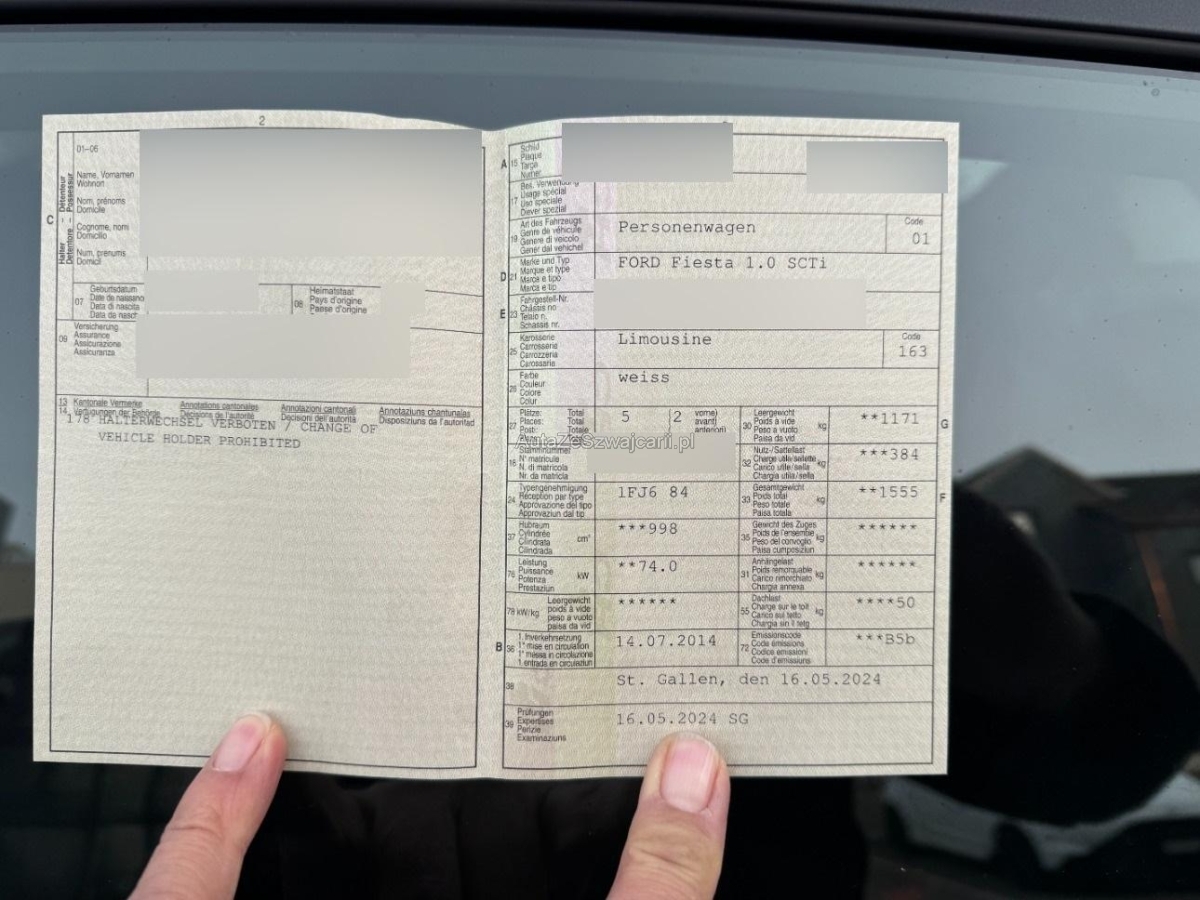 2
01-06
Halter – Détenteur
Detentore – Possessur
C
Name, Vornamen
Wohnort
Nom, prénoms
Domicile
Cognome, nomi
Domicilio
Num, prenums
Domicil
07
Geburtsdatum
Date de naissanc
Data di nascita
Data da nasch
08
Heimatstaat
Pays d'origine
Paese d'origine
09
Versicherung
Assurance
Assicurazione
Assicuranza
13 Kantonale Vermerke Annotations cantonales Annotazioni cantonali Annotaziuns chantunalas
14 Verfügungen der Behörde Décisions de l'autorité Decisioni dell'autorità Disposiziuns da l'autoritad
178 HALTERWECHSEL VERBOTEN / CHANGE OF
VEHICLE HOLDER PROHIBITED
A 15
Schild
Plaque
Targa
Numer
17
Bes. Verwendung
Usage spécial
Uso speciale
Diever spezial
19
Art des Fahrzeugs
Genre de véhicule
Genere di veicolo
Gener dal vehichel
Personenwagen
Code
01
D 21
Marke und Typ
Marque et type
Marca e tipo
Marca e tip
FORD Fiesta 1.0 SCTi
E 23
Fahrgestell-Nr.
Châssis no
Telaio n.
Schassis nr.
25
Karosserie
Carrosserie
Carrozzeria
Carossaria
Limousine
Code
163
26
Farbe
Couleur
Colore
Colur
weiss
27
Plätze: Total
Places: Total
Posti: Totale
5 2
vorne)
avant)
anteriori)
30
Leergewicht
Poids à vide
Peso a vuoto
Paisa da vid
kg
**1171
G
AutaZeSzwajcarii.pl
18
Stammnummer
N° matricule
N. di matricola
Nr. da matricla
32
Nutz-/Sattellast
Charge utile/sellette
Carico utile/sella
Chargia utila/sella
kg
***384
24
Typengenehmigung
Réception par type
Approvazione del tipo
Approvaziun dal tip
1FJ6 84
33
Gesamtgewicht
Poids total
Peso totale
Paisa totala
kg
**1555
F
37
Hubraum
Cylindrée
Cilindrata
Cilindrada
cm³
***998
35
Gewicht des Zuges
Poids de l'ensemble
Peso del convoglio
Paisa cumposiziun
kg
******
76
Leistung
Puissance
Potenza
Prestaziun
kW
**74.0
31
Anhängelast
Poids remorquable
Carico rimorchiato
Chargia annexa
kg
******
78 kW/kg
Leergewicht
poids à vide
peso a vuoto
paisa da vid
******
55
Dachlast
Charge sur le toit
Carico sul tetto
Chargia sin il tetg
kg
****50
B 36
1. Inverkehrsetzung
1re mise en circulation
1a messa in circolazione
1. entrada en circulaziun
14.07.2014
72
Emissionscode
Code émissions
Codice emissioni
Code d'emissiuns
***B5b
38
St. Gallen, den 16.05.2024
39
Prüfungen
Expertises
Perizie
Examinaziuns
16.05.2024 SG